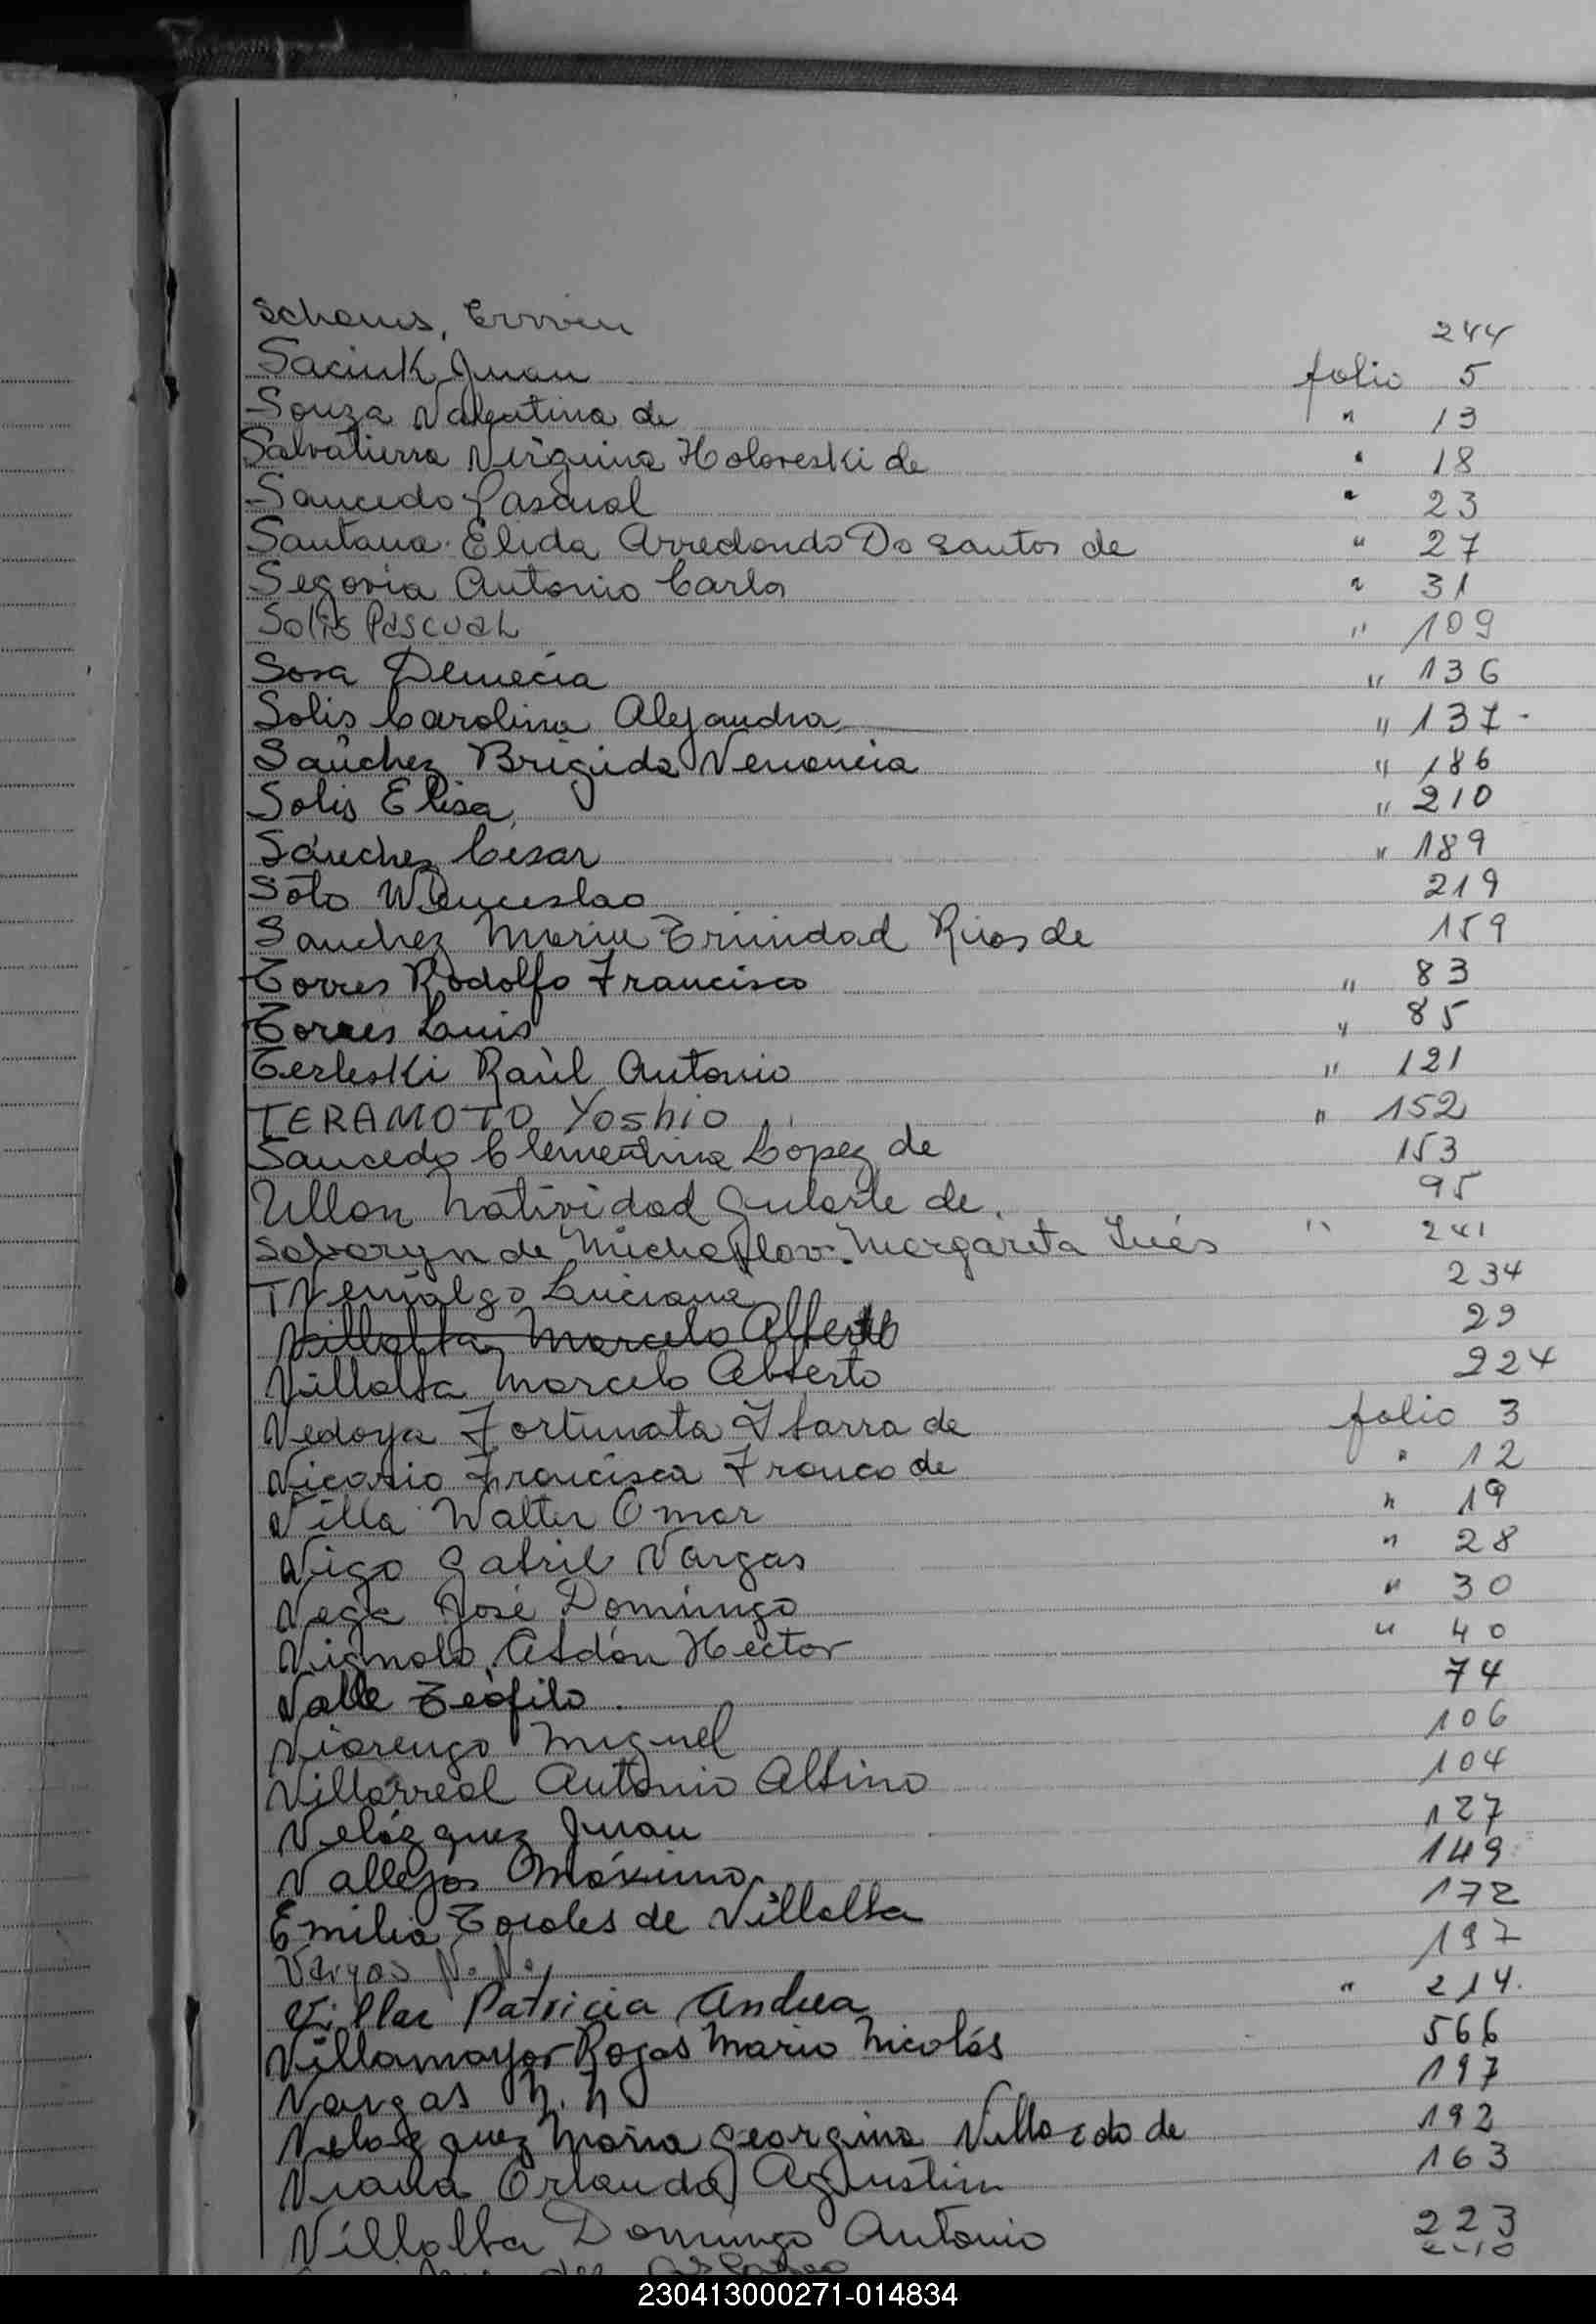 Schaus, Erwin 244
Saciuk Juan folio 5
Souza Valentina de " 13
Salvatierra Virginia Holoveski de " 18
Saucedo Pascual " 23
Santana Elida Arredondo Do Santos de " 27
Segovia Antonio Carlos " 31
Solis Pascual " 109
Sosa Demecia " 136
Solis Carolina Alejandra " 137-
Sanchez Brigida Venancia " 186
Solis Elisa " 210
Sánchez Cesar " 189
Soto Wenceslao 219
Sanchez Maria Trinidad Rios de 159
Torres Rodolfo Francisco " 83
Torres Luis " 85
Terleski Raùl Antonio " 121
TERAMOTO Yoshio " 152
Saucedo Clementina López de 153
Ullon Natividad Gularte de 95
de Margareta Inés " 241
Luciana 234
Villalba Marcelo Alberto 29
Villalba Marcelo Alberto 224
Vedoya Fortunata Ibarra de folio 3
Vicario Francisca Franco de " 12
Villa Walter Omar " 19
Vigo Gabril Vargas " 28
Vega José Domingo " 30
Vignolo Abdón Hector " 40
Valle Teófilo 74
Viarengo Miguel 106
Villarreal Antonio Albino 104
Velázquez Juan 127
Vallejos Máximo 149
Emilia Torales de Villalba 172
Vargas N. N. 197
Villar Patricia Andrea " 214.
Villamayor Rojas Mario Nicolás 566
Vargas N. N 197
Velazquez Maria Georgina de 192
Viana Orlando Agustin 163
Villalba Domingo Antonio 223
230413000271-014834